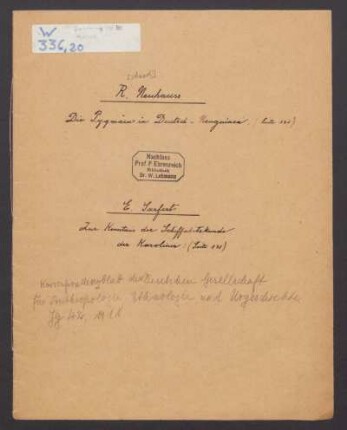 W
336,20
R. Neuhauss
Die Pygmäen in Deutsch-Neuguinea. (Seite
Nachlass
Prof. P. Ehrenreich
Dr. W. Lehmann
E. Sarfert
Zur Kenntnis der Schiffahrtskunde
der Karoliner. (Seite
Korrespondenzblatt der Deutschen Gesellschaft
für Anthropologie Ethnologie und Urgeschichte
Jg. 42,